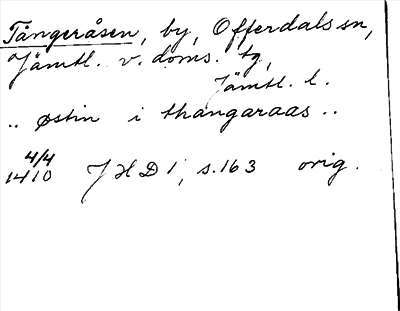 Tångeråsen, by, Offerdals sn,
Jämtl. v. doms. tg,
Jämtl. l.
.. østin i thangaraas ..
4/4
1410 JHD 1, s. 163 orig.